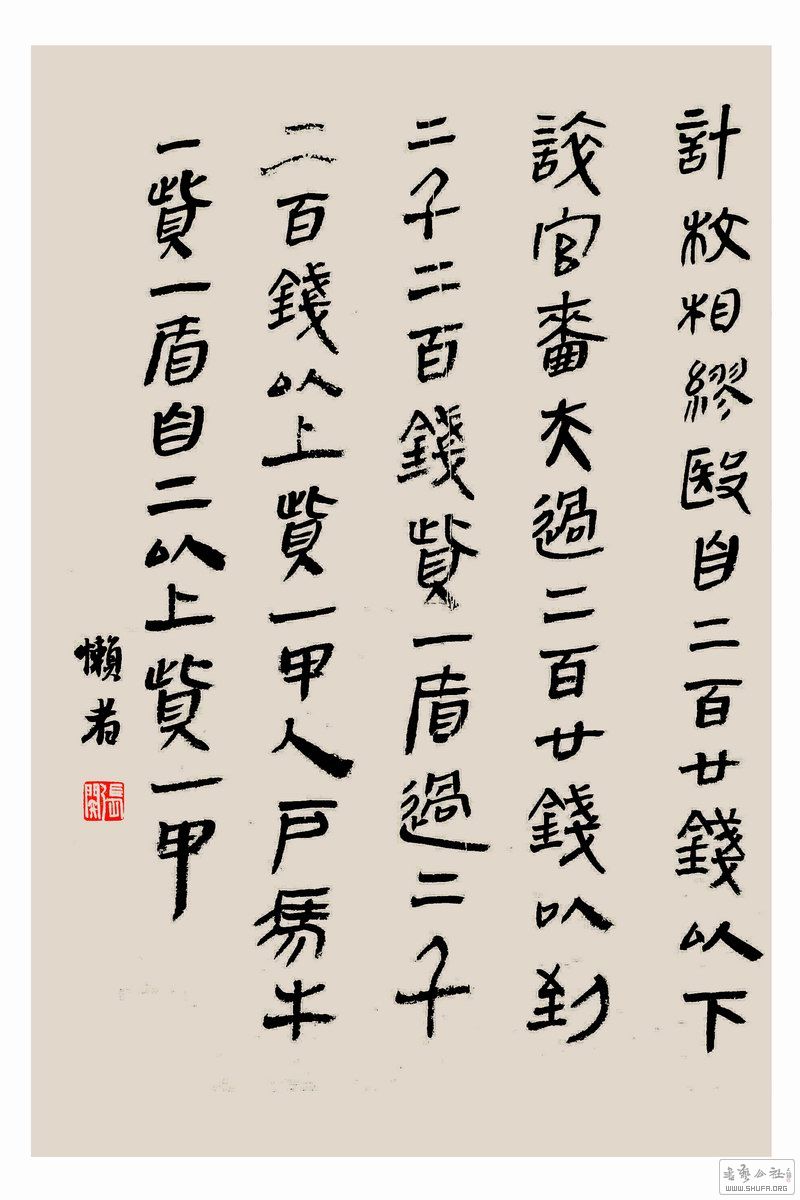 計校相繆殹自二百廿錢以下
誶官嗇夫過二百廿錢以到
二千二百錢貲一盾過二千
二百錢以上貲一甲人戶馬牛
一貲一盾自二以上貲一甲
懶者
書藝公社
WWW.SHUFA.ORG